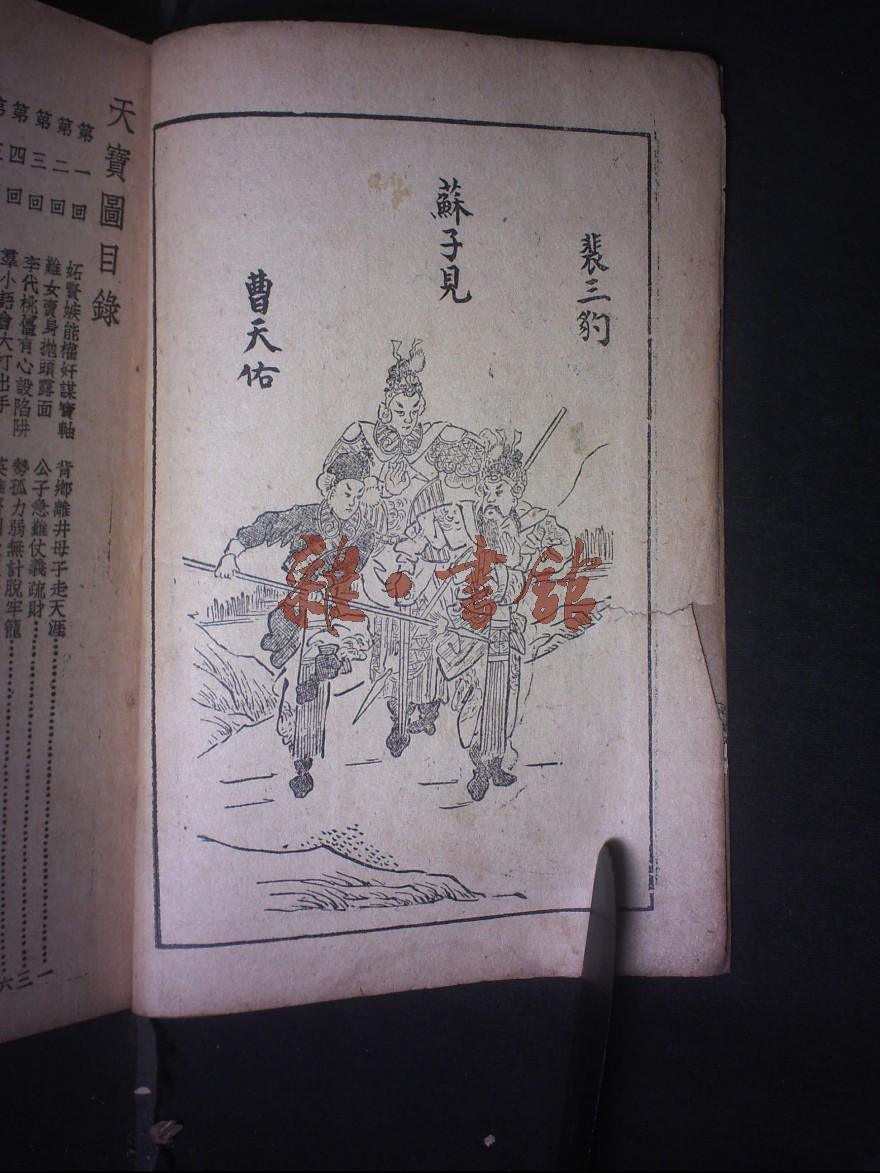 裴三豹
蘇子見
曹天佑
雜·書館
天寶圖目錄
第一回 妬賢嫉能權奸謀寶軸 背鄉離井母子走天涯……一
第二回 難女賣身拋頭露面 公子急難仗義疏財……三
第三回 李代桃僵有心設陷阱 勢孤力弱無計脫牢籠……六
第四回 羣小 大打出手